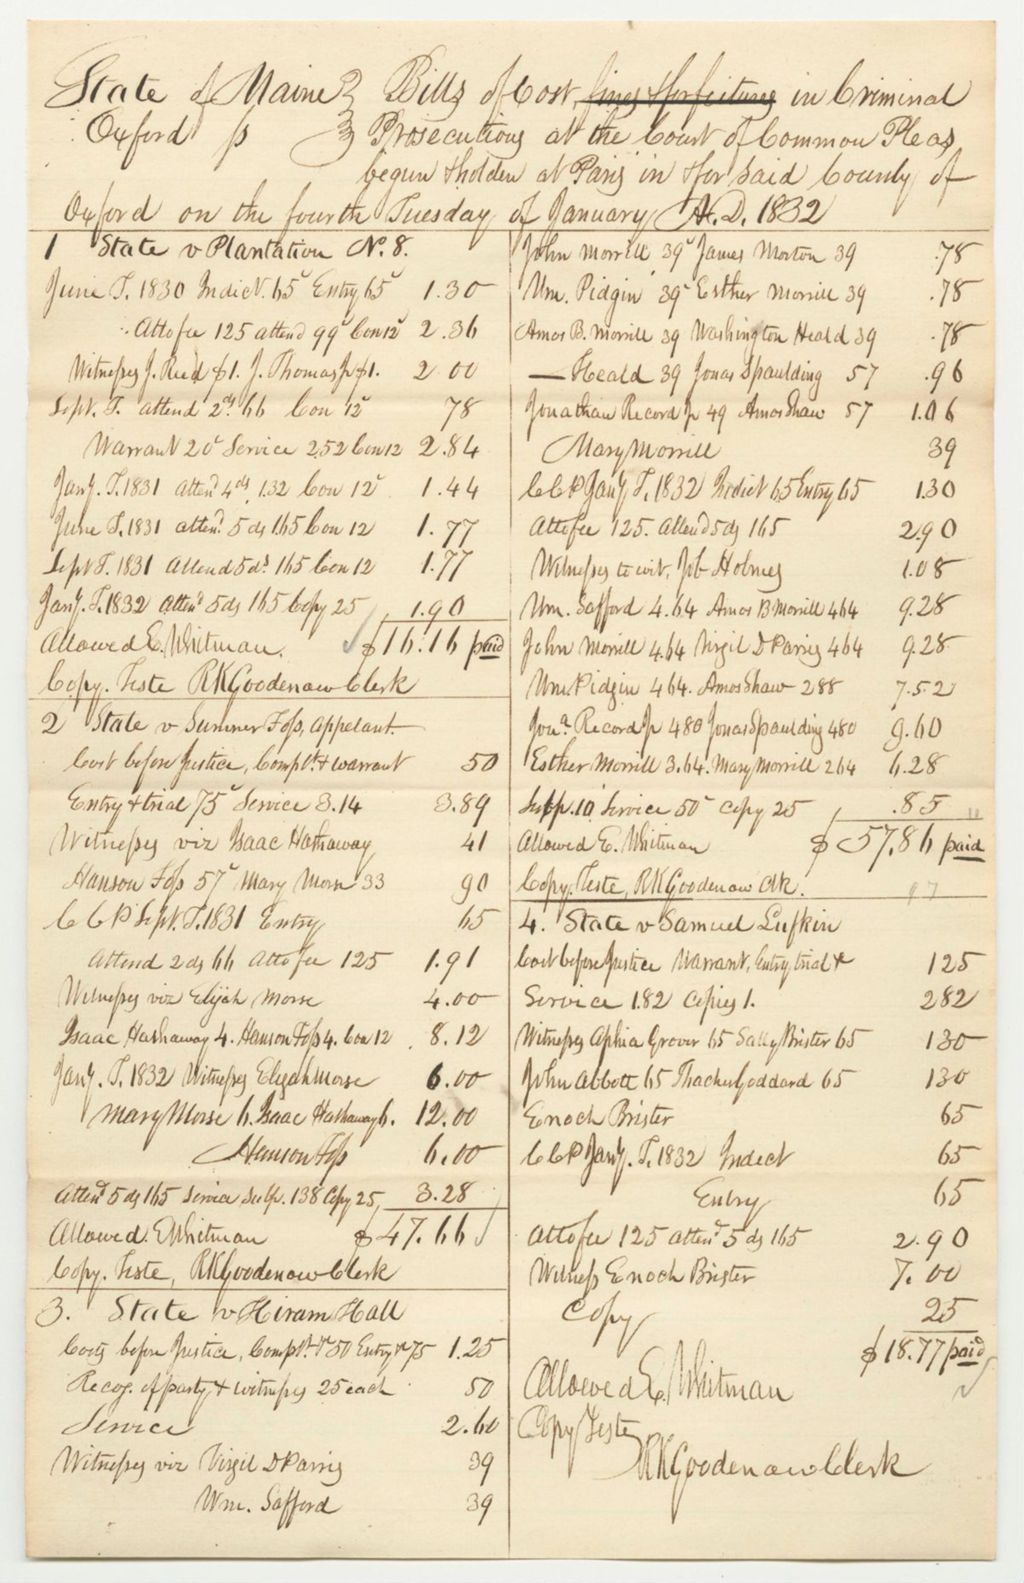 State of Maine } Bills of Cost fines & forfeitures in Criminal
Oxford ss } Prosecutions at the Court of Common Pleas
begun & holden at Paris in & for said County of
Oxford on the fourth Tuesday of January A.D. 1832
1 State v Plantation No. 8.
June T. 1830 Indict. 65c Entry 65c 1.30
Atto fee 125 attend 99c Con 12c 2.36
Witnesses J. Reed $1. J. Thomas jr $1. 2 00
Sept. T. attend 2ds 66 Con 12c 78
Warrant 20c Service 2,52 Con 12 2.84
Jany. T. 1831 attend 4ds, 1.32 Con 12c 1.44
June T. 1831 attend. 5 ds 165 Con 12 1.77
Sept T. 1831 attend 5 ds 165 Con 12 1.77
Jany. T. 1832 attend 5 ds 165 Copy 25 1.90
Allowed E. Whitman. $16.16 paid
Copy. Teste RK Goodenow Clerk
2 State v Sumner Foss, Appelant
Cost before Justice, Complt. & warrant 50
Entry & trial 75c Service 3.14 3.89
Witnesses viz Isaac Hathaway 41
Hanson Foss 57c Mary Morse 33 90
C C P Sept. T. 1831 Entry 65
Attend 2 ds 66 Atto fee 125 1.91
Witnesses viz Elijah Morse 4.00
Isaac Hathaway 4. Hanson Foss 4. Con 12 8.12
Jany. T. 1832 Witnesses Elijah Morse 6.00
Mary Morse 6. Isaac Hathaway 6. 12.00
Hanson Foss 6.00
Attend 5 ds 165 Service subp. 138 Copy 25 3.28
Allowed. E Whitman $47.66
Copy. Teste, RK Goodenow Clerk
3. State v Hiram Hall
Costs before Justice, Complt. &c 50 Entry &c 75 1.25
Recog. of party & witnesses 25 each 50
Service 2.60
Witnesses viz Virgil D Parris 39
Wm. Safford 39
John Morrill 39c James Morton 39 .78
Wm. Pidgin 39c Esther Morrill 39 .78
Amos B. Morrill 39 Washington Heald 39 .78
— Heald 39 Jonas Spaulding 57 .96
Jonathan Record Jr 49 Amos Shaw 57 1.06
Mary Morrill 39
C C P Jany T. 1832 Indict 65 Entry 65 130
Atto fee 125. Attend 5 ds 165 2.90
Witnesses to wit, Job Holmes 1.08
Wm. Safford 4.64 Amos B Morrill 464 9.28
John Morrill 4.64 Virgil D Parris 464 9.28
Wm Pidgin 464. Amos Shaw 288 7.52
Jona. Record Jr 480 Jonas Spaulding 480 9.60
Esther Morrill 3.64. Mary Morrill 264 6.28
Subp. 10 Service 50c Copy 25 .85
Allowed E. Whitman $57.86 paid
Copy. Teste, RK Goodenow Clk.
4. State v Samuel Lufkin
Cost before Justice Warrant, Entry, trial &c 125
Service 1.82 Copies 1. 282
Witnesses Aphia Grover 65 Sally Brister 65 130
John Abbott 65 Thacher Goddard 65 130
Enoch Brister 65
C C P Jany. T. 1832 Indict 65
Entry 65
Atto fee 125 attend 5 ds 165 2.90
Witness Enoch Brister 7.00
Copy 25
$18.77 paid
Allowed E. Whitman
Copy Teste
RK Goodenow Clerk